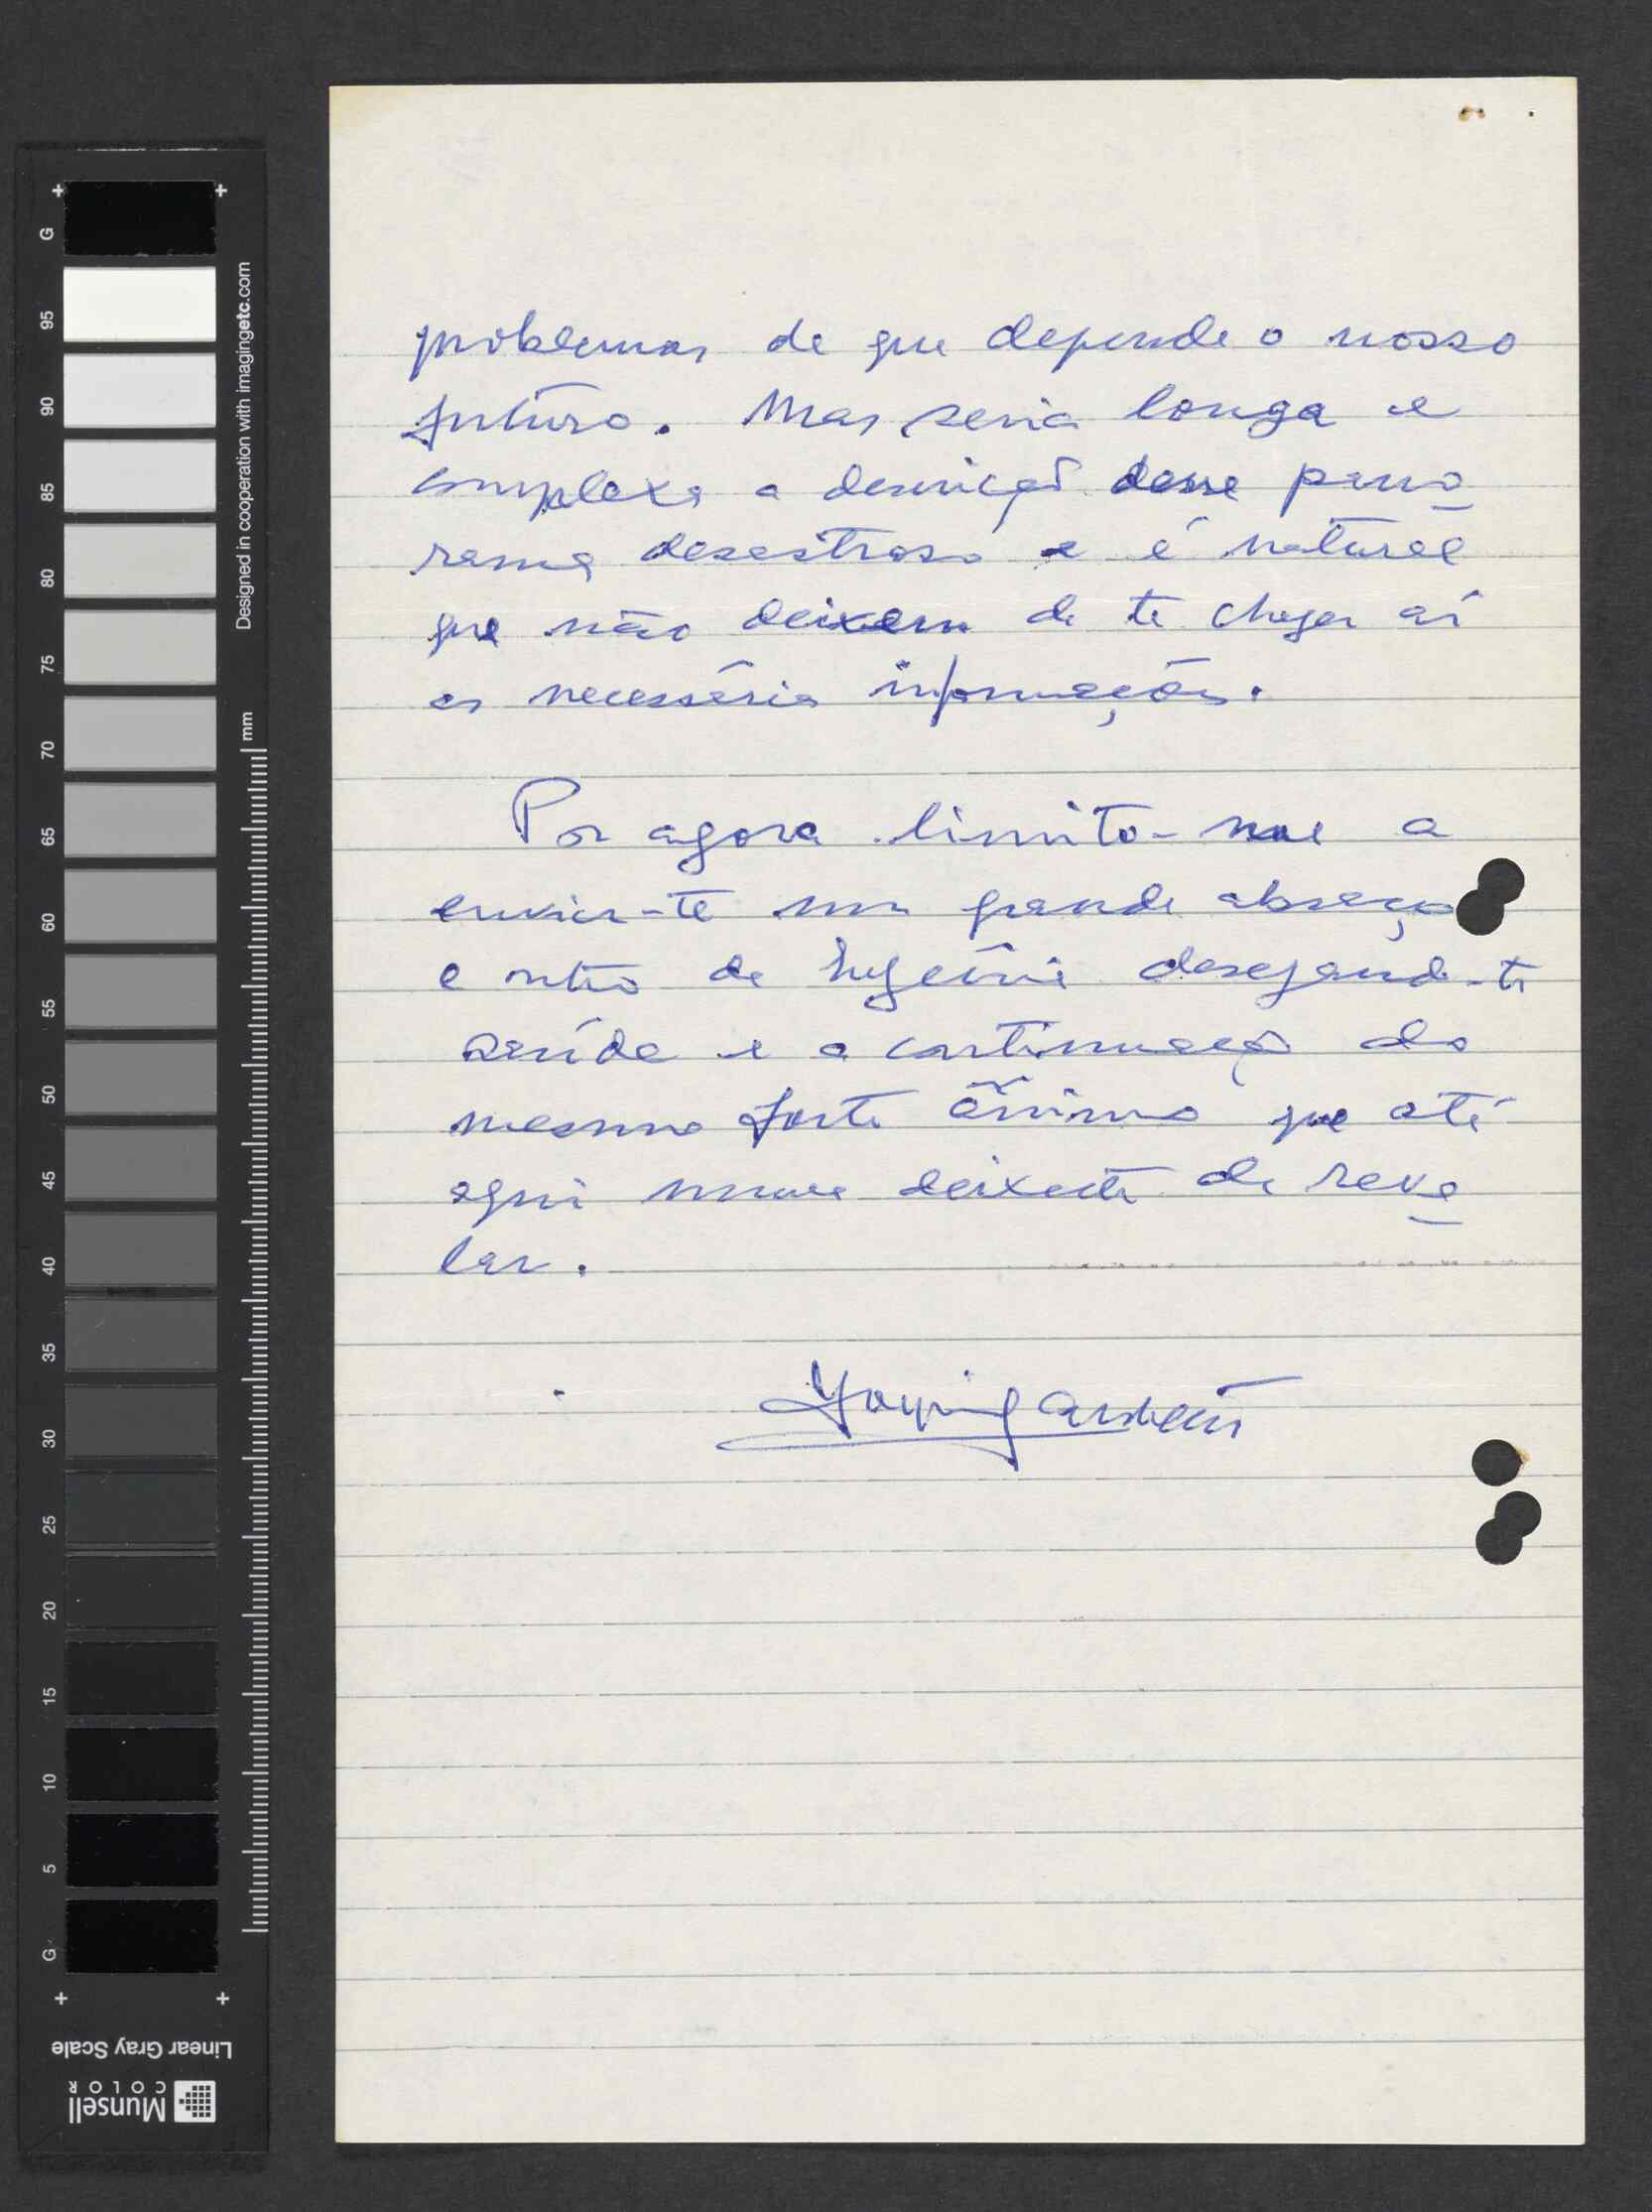 problemas de que depende o nosso
futuro. Mas seria longa e
complexa a descrição desse pano
rama desastroso e é natural
que não deixem de te chegar aí
as necessárias informações.
Por agora limito-me a
enviar-te um grande abraço
e outro de Eugénia desejando-te
saúde e a continuação do
mesmo forte ânimo que até
aqui nunca deixaste de reve
lar.
G
95
90
85
80
75
70
65
60
55
50
45
40
35
30
25
20
15
10
5
G
Designed in cooperation with imagingetc.com
mm
Linear Gray Scale
Munsell
COLOR